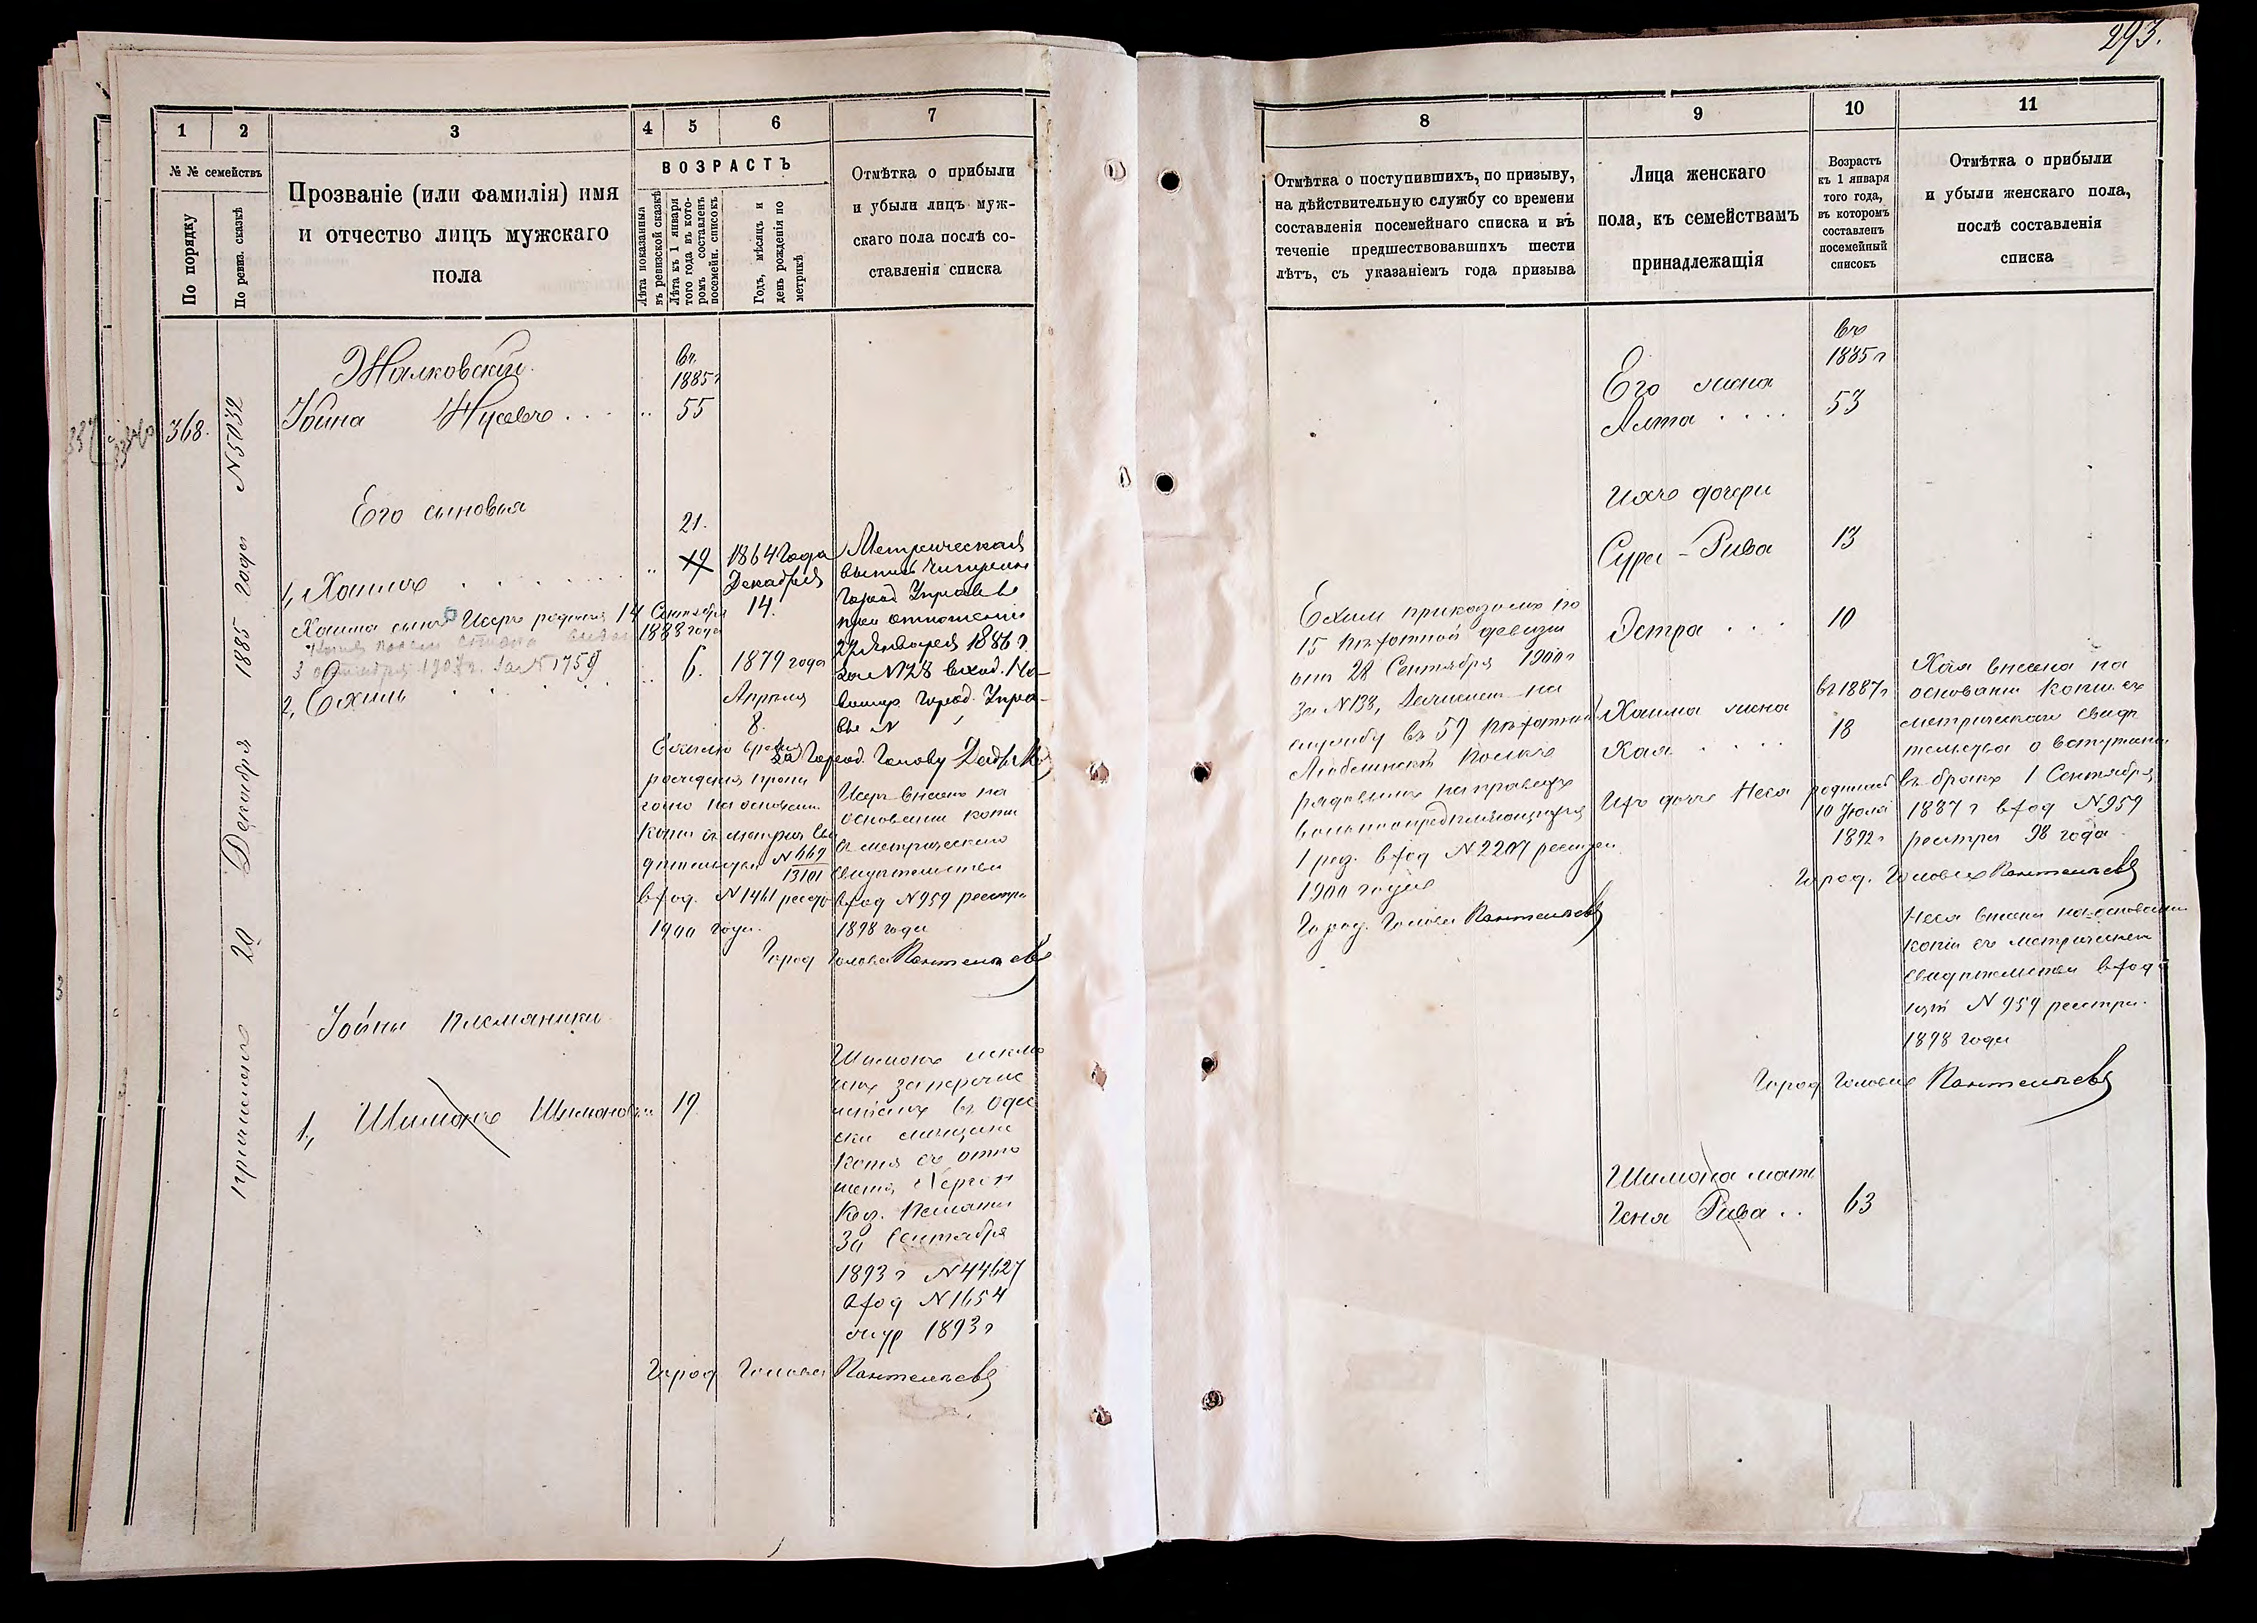 293.
1
2
3
4
5
6
7
№ № семействъ
По порядку
По ревиз. сказкѣ
Прозваніе (или фамилія) имя
и отчество лицъ мужскаго
пола
ВОЗРАСТЪ
Лѣта показанныя
въ ревизской сказкѣ
Лѣта къ 1 января
того года въ кото-
ромъ составленъ
посемейн. списокъ
Годъ, мѣсяцъ и
день рожденія по
метрикѣ
Отмѣтка о прибыли
и убыли лицъ муж-
скаго пола послѣ со-
ставленія списка
368.
причислено 20 Декабря 1885 года №5032
Жалковскій
Іойна Нусевъ
въ
1885 г
55
Его сыновья
21.
19
1, Хаимъ
1864 года
Декабря
14.
Метрическая
Город
при отношеніи
22 Января 1886 г.
за №128 вход.
Хаима сынъ Исеръ родился 14 Сентября
1888 года
3 1907 г. за №1759
2, Ехиль
6.
1879 года
Апрѣля
8.
город. Упра-
вы №
за Город. Голову
Ехилю время
рожденія
на основаніи
копіи съ метрич. сви
дѣтельства №669
13101
вход. №1461 реестр
1900 года.
Исеръ внесенъ на
основаніи копіи
съ метрическаго
свидѣтельства
вход №959 реестра
1898 года
Город Голова Пантелѣевъ
Іойны племянники
1, Шимонъ Шимоновъ
19
Шимонъ исклю
ченъ за перечис
леніемъ въ Одес
скіе мѣщане
Копія съ отно
шенія Херсон
Каз. Палаты
30 Сентября
1893 г №44627
вход №1654
1893 г
Город Голова Пантелѣевъ
8
9
10
11
Отмѣтка о поступившихъ, по призыву,
на дѣйствительную службу со времени
составленія посемейнаго списка и въ
теченіе предшествовавшихъ шести
лѣтъ, съ указаніемъ года призыва
Лица женскаго
пола, къ семействамъ
принадлежащія
Возрастъ
къ 1 января
того года,
въ которомъ
составленъ
посемейный
списокъ
Отмѣтка о прибыли
и убыли женскаго пола,
послѣ составленія
списка
въ
1885 г
Его жена
Алта
53
Ихъ дочери
Сура-Рива
13
Эстра
10
Ехиль приказомъ по
15 пѣхотной дивизіи
отъ 28 Сентября 1900 г
за №138, зачисленъ на
службу въ 59 пѣхотный
Люблинскій полкъ
рядовымъ на правахъ
вольноопредѣляющагося
1 раз. вход №2207 реестра
1900 года
Город. Голова Пантелѣевъ
въ 1887 г
Хаима жена
Хая
18
Ихъ дочь Неся родилась
10 Іюля
1892 г
Хая внесена на
основаніи копіи съ
метрическаго свидѣ
тельства о вступленіи
въ бракъ 1 Сентября
1887 г вход №959
реестра 98 года
Город. Голова Пантелѣевъ
Неся внесена на основаніи
копіи съ метрическаго
свидѣтельства вход
щій №959 реестра
1898 года
Город Голова Пантелѣевъ
Шимона мать
Геня Рива
63